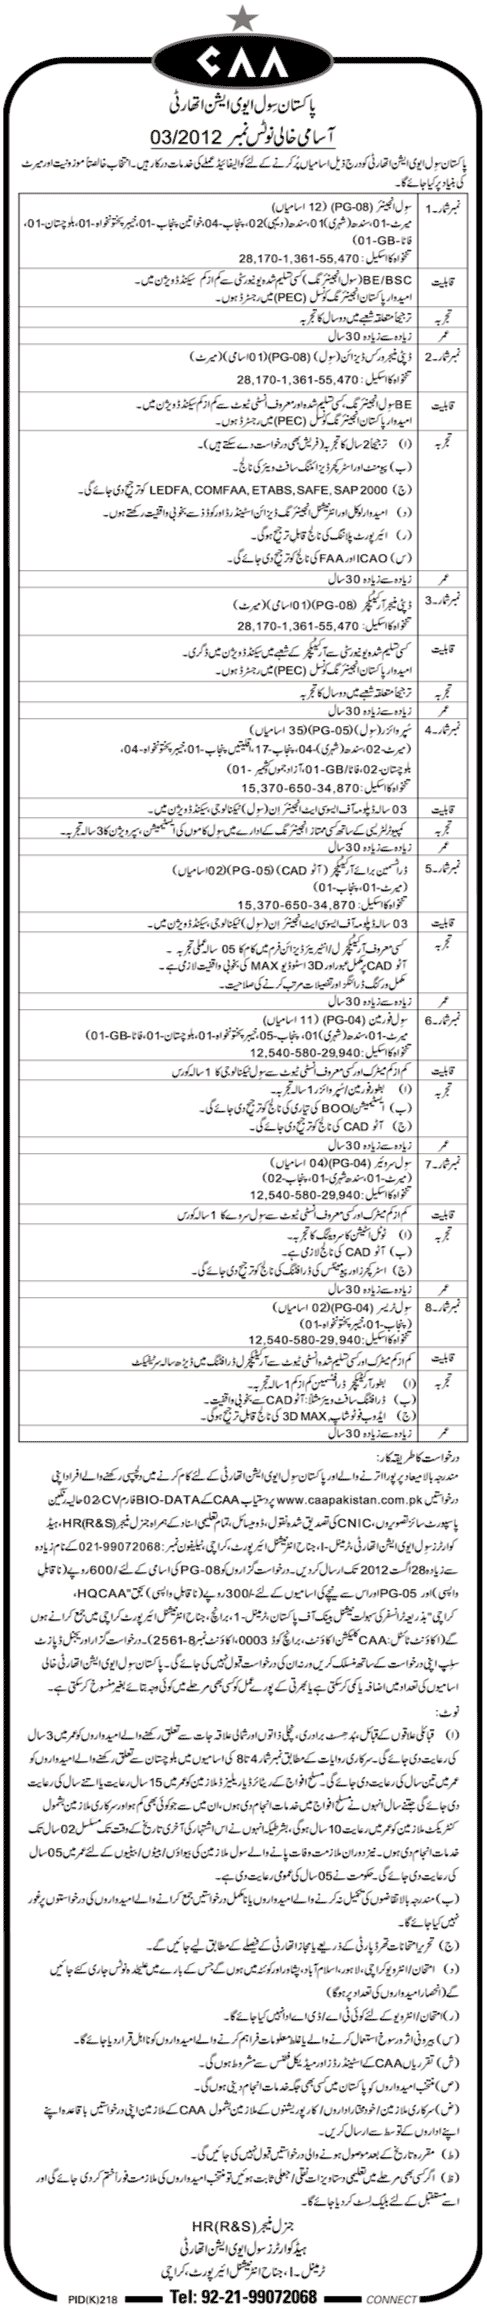 CAA
پاکستان سول ایوی ایشن اتھارٹی
آسامی خالی نوٹس نمبر 03/2012
پاکستان سول ایوی ایشن اتھارٹی کو درج ذیل اسامیاں پُر کرنے کے لئے کوالیفائیڈ عملے کی خدمات درکار ہیں۔ انتخاب خالصتاً موزونیت اور میرٹ
کی بنیاد پر کیا جائے گا۔
نمبر شمار۔1 سول انجینئر (PG-08) (12 اسامیاں)
میرٹ-01، سندھ (شہری) 01، سندھ (دیہی) 02، پنجاب-04، خواتین پنجاب-01، خیبر پختونخواہ-01، بلوچستان-01،
فاٹا-GB-01)
تنخواہ کا اسکیل: 28,170-1,361-55,470
قابلیت BE/BSC (سول انجینئرنگ) کسی تسلیم شدہ یونیورسٹی سے کم از کم سیکنڈ ڈویژن میں۔
امیدوار پاکستان انجینئرنگ کونسل (PEC) میں رجسٹرڈ ہوں۔
تجربہ ترجیحاً متعلقہ شعبے میں دو سال کا تجربہ
عمر زیادہ سے زیادہ 30 سال
نمبر شمار۔2 ڈپٹی منیجر ورکس ڈیزائن (سول) (PG-08) (01 اسامی) (میرٹ)
تنخواہ کا اسکیل: 28,170-1,361-55,470
قابلیت BE سول انجینئرنگ، کسی تسلیم شدہ اور معروف انسٹی ٹیوٹ سے کم از کم سیکنڈ ڈویژن میں۔
امیدوار پاکستان انجینئرنگ کونسل (PEC) میں رجسٹرڈ ہوں۔
تجربہ (ا) ترجیحاً 2 سال کا تجربہ (فریش بھی درخواست دے سکتے ہیں)۔
(ب) پیومنٹ اور اسٹرکچر ڈیزائننگ سافٹ ویئر کی نالج۔
(ج) LEDFA, COMFAA, ETABS, SAFE, SAP 2000 کو ترجیح دی جائے گی۔
(د) امیدوار لوکل اور انٹرنیشنل انجینئرنگ ڈیزائن اسٹینڈرڈ اور کوڈز سے بخوبی واقفیت رکھتے ہوں۔
(ر) ائیرپورٹ پلاننگ کی نالج قابل ترجیح ہوگی۔
(س) ICAO اور FAA کی نالج کو ترجیح دی جائے گی۔
عمر زیادہ سے زیادہ 30 سال
نمبر شمار۔3 ڈپٹی منیجر آرکیٹیکچر (PG-08) (01 اسامی) (میرٹ)
تنخواہ کا اسکیل: 28,170-1,361-55,470
قابلیت کسی تسلیم شدہ یونیورسٹی سے آرکیٹیکچر کے شعبے میں سیکنڈ ڈویژن میں ڈگری۔
امیدوار پاکستان انجینئرنگ کونسل (PEC) میں رجسٹرڈ ہوں۔
تجربہ ترجیحاً متعلقہ شعبے میں دو سال کا تجربہ
عمر زیادہ سے زیادہ 30 سال
نمبر شمار۔4 سُپروائزر (سول) (PG-05) (35 اسامیاں)
(میرٹ-02، سندھ (شہری)-04، پنجاب-17، اقلیتیں پنجاب-01، خیبر پختونخواہ-04،
بلوچستان-02، فاٹا/GB-01، آزاد جموں کشمیر-01)
تنخواہ کا اسکیل: 15,370-650-34,870
قابلیت 03 سالہ ڈپلومہ آف ایسوسی ایٹ انجینئر اِن (سول) ٹیکنالوجی، سیکنڈ ڈویژن میں۔
تجربہ کمپیوٹر لٹریسی کے ساتھ کسی ممتاز انجینئرنگ کے ادارے میں سول کاموں کی ایسٹیمیشن، سپرویژن کا 3 سالہ تجربہ۔
عمر زیادہ سے زیادہ 30 سال
نمبر شمار۔5 ڈرافٹسمین برائے آرکیٹیکچر (آٹو CAD) (PG-05) (02 اسامیاں)
(میرٹ-01، پنجاب-01)
تنخواہ کا اسکیل: 15,370-650-34,870
قابلیت 03 سالہ ڈپلومہ آف ایسوسی ایٹ انجینئر اِن (سول) ٹیکنالوجی، سیکنڈ ڈویژن میں۔
تجربہ کسی معروف آرکیٹیکچرل/انٹیریئر ڈیزائن فرم میں کام کا 05 سالہ عملی تجربہ۔
آٹو CAD پر مکمل عبور اور 3D اسٹوڈیو MAX کی بخوبی واقفیت لازمی ہے۔
مکمل ورکنگ ڈرائنگز اور تفصیلات مرتب کرنے کی صلاحیت۔
عمر زیادہ سے زیادہ 30 سال
نمبر شمار۔6 سول فورمین (PG-04) (11 اسامیاں)
میرٹ-01، سندھ (شہری) 01، پنجاب-05، خیبر پختونخواہ-01، بلوچستان-01، فاٹا-GB-01)
تنخواہ کا اسکیل: 12,540-580-29,940
قابلیت کم از کم میٹرک اور کسی معروف انسٹی ٹیوٹ سے سول ٹیکنالوجی کا 1 سالہ کورس
تجربہ (ا) بطور فورمین/سُپروائزر 1 سالہ تجربہ۔
(ب) ایسٹیمیشن/BOQ کی تیاری کی نالج کو ترجیح دی جائے گی۔
(ج) آٹو CAD کی نالج کو ترجیح دی جائے گی۔
عمر زیادہ سے زیادہ 30 سال
نمبر شمار۔7 سول سروئیر (PG-04) (04 اسامیاں)
(میرٹ-01، سندھ شہری-01، پنجاب-02)
تنخواہ کا اسکیل: 12,540-580-29,940
قابلیت کم از کم میٹرک اور کسی معروف انسٹی ٹیوٹ سے سول سروے کا 1 سالہ کورس
تجربہ (ا) ٹوٹل اسٹیشن کا سرویئنگ کا تجربہ۔
(ب) آٹو CAD کی نالج لازمی ہے۔
(ج) اسٹرکچرز اور پیومنٹس کی ڈرافٹنگ کی نالج کو ترجیح دی جائے گی۔
عمر زیادہ سے زیادہ 30 سال
نمبر شمار۔8 سول ٹریسر (PG-04) (02 اسامیاں)
(پنجاب-01، خیبر پختونخواہ-01)
تنخواہ کا اسکیل: 12,540-580-29,940
قابلیت کم از کم میٹرک اور کسی تسلیم شدہ انسٹی ٹیوٹ سے آرکیٹیکچرل ڈرافٹنگ میں ڈیڑھ سالہ سرٹیفکیٹ
تجربہ (ا) بطور آرکیٹیکچر ڈرافٹسمین کم از کم 1 سالہ تجربہ۔
(ب) ڈرافٹنگ سافٹ ویئر مثلاً: آٹو CAD سے بخوبی واقفیت۔
(ج) ایڈوب فوٹو شاپ، 3D MAX کی نالج قابل ترجیح ہوگی۔
عمر زیادہ سے زیادہ 30 سال
درخواست کا طریقہ کار:
مندرجہ بالا معیاد پر پورا اترنے والے اور پاکستان سول ایوی ایشن اتھارٹی کے لئے کام کرنے میں دلچسپی رکھنے والے افراد اپنی
درخواستیں www.caapakistan.com.pk پر دستیاب CAA کے BIO-DATA فارم، CV، 02 حالیہ رنگین
پاسپورٹ سائز تصویروں، CNIC کی تصدیق شدہ نقول، ڈومیسائل، تمام تعلیمی اسناد کے ہمراہ جنرل منیجر HR(R&S)، ہیڈ
کوارٹرز سول ایوی ایشن اتھارٹی، ٹرمینل-I، جناح انٹرنیشنل ائیرپورٹ، کراچی، ٹیلیفون نمبر: 021-99072068 کے نام زیادہ
سے زیادہ 28 اگست 2012 تک ارسال کر دیں۔ درخواست گزاروں کو PG-08 کی اسامی کے لئے 600/- روپے (نا قابل
واپسی) اور PG-05 اور اس سے نیچے کی اسامیوں کے لئے 300/- روپے (نا قابل واپسی) بحق "HQCAA،
کراچی" بذریعہ ٹرانسفر کی سہولت نیشنل بینک آف پاکستان، ٹرمینل-1، برانچ، جناح انٹرنیشنل ائیرپورٹ کراچی میں جمع کرانے ہوں
گے (اکاؤنٹ ٹائٹل: CAA کلیکشن اکاؤنٹ، برانچ کوڈ 0003، اکاؤنٹ نمبر 8-2561)۔ درخواست گزار اوریجنل ڈپازٹ
سلپ اپنی درخواست کے ساتھ منسلک کریں ورنہ ان کی درخواست قبول نہیں کی جائے گی۔ پاکستان سول ایوی ایشن اتھارٹی خالی
اسامیوں کی تعداد میں اضافہ یا کمی کر سکتی ہے یا بھرتی کے پورے عمل کو کسی بھی مرحلے میں کوئی وجہ بتائے بغیر منسوخ کر سکتی ہے۔
نوٹ:
(ا) قبائلی علاقوں کے قبائل، بُدھسٹ برادری، نچلی ذاتوں اور شمالی علاقہ جات سے تعلق رکھنے والے امیدواروں کو عمر میں 3 سال
کی رعایت دی جائے گی۔ سرکاری روایات کے مطابق نمبر شمار 4 تا 8 کی اسامیوں میں بلوچستان سے تعلق رکھنے والے امیدواروں کو
عمر میں تین سال کی رعایت دی جائے گی۔ مسلح افواج کے ریٹائرڈ یا ریلیزڈ ملازمین کو عمر میں 15 سال رعایت یا اتنے سال کی رعایت
دی جائے گی جتنے سال انہوں نے مسلح افواج میں خدمات انجام دی ہوں، ان میں سے جو کوئی بھی کم ہو اور سرکاری ملازمین بشمول
کنٹریکٹ ملازمین کو عمر میں رعایت 10 سال ہوگی، بشرطیکہ انہوں نے اس اشتہار کی آخری تاریخ کے وقت تک مسلسل 02 سال تک
خدمات انجام دی ہوں۔ نیز دوران ملازمت وفات پانے والے سول ملازمین کی بیواؤں/بیٹوں/بیٹیوں کے لئے عمر میں 05 سال
کی رعایت دی جائے گی۔ حکومت نے 05 سال کی عمومی رعایت دی ہے۔
(ب) مندرجہ بالا تقاضوں کی تکمیل نہ کرنے والے امیدواروں یا نامکمل درخواستیں جمع کرانے والے امیدواروں کی درخواستوں پر غور
نہیں کیا جائے گا۔
(ج) تحریر امتحانات تھرڈ پارٹی کے ذریعے یا مجاز اتھارٹی کے فیصلے کے مطابق لیے جائیں گے۔
(د) امتحان/انٹرویو کراچی، لاہور، اسلام آباد، پشاور اور کوئٹہ میں ہوں گے جس کے بارے میں علیحدہ نوٹس جاری کئے جائیں
گے (انحصار امیدواروں کی تعداد پر ہوگا)
(ر) امتحان/انٹرویو کے لئے کوئی ٹی اے/ڈی اے ادا نہیں کیا جائے گا۔
(س) بیرونی اثر و رسوخ استعمال کرنے والے یا غلط معلومات فراہم کرنے والے امیدواروں کو نااہل قرار دیا جائے گا۔
(ش) تقرریاں CAA کے اسٹینڈرڈز اور میڈیکل فٹنس سے مشروط ہوں گی۔
(ص) منتخب امیدواروں کو پاکستان میں کسی بھی جگہ خدمات انجام دینی ہوں گی۔
(ض) سرکاری ملازمین/خودمختار اداروں/کارپوریشنوں کے ملازمین بشمول CAA کے ملازمین اپنی درخواستیں باقاعدہ اپنے
اپنے اداروں کے توسط سے ارسال کریں۔
(ط) مقررہ تاریخ کے بعد موصول ہونے والی درخواستیں قبول نہیں کی جائیں گی۔
(ظ) اگر کسی بھی مرحلے میں تعلیمی دستاویزات نقلی/جعلی ثابت ہوئیں تو منتخب امیدواروں کی ملازمت فوراً ختم کر دی جائے گی اور
اسے مستقبل کے لئے بلیک لسٹ کر دیا جائے گا۔
جنرل منیجر HR(R&S)
ہیڈ کوارٹرز سول ایوی ایشن اتھارٹی
ٹرمینل-I، جناح انٹرنیشنل ائیرپورٹ، کراچی
PID(K)218 Tel: 92-21-99072068 CONNECT